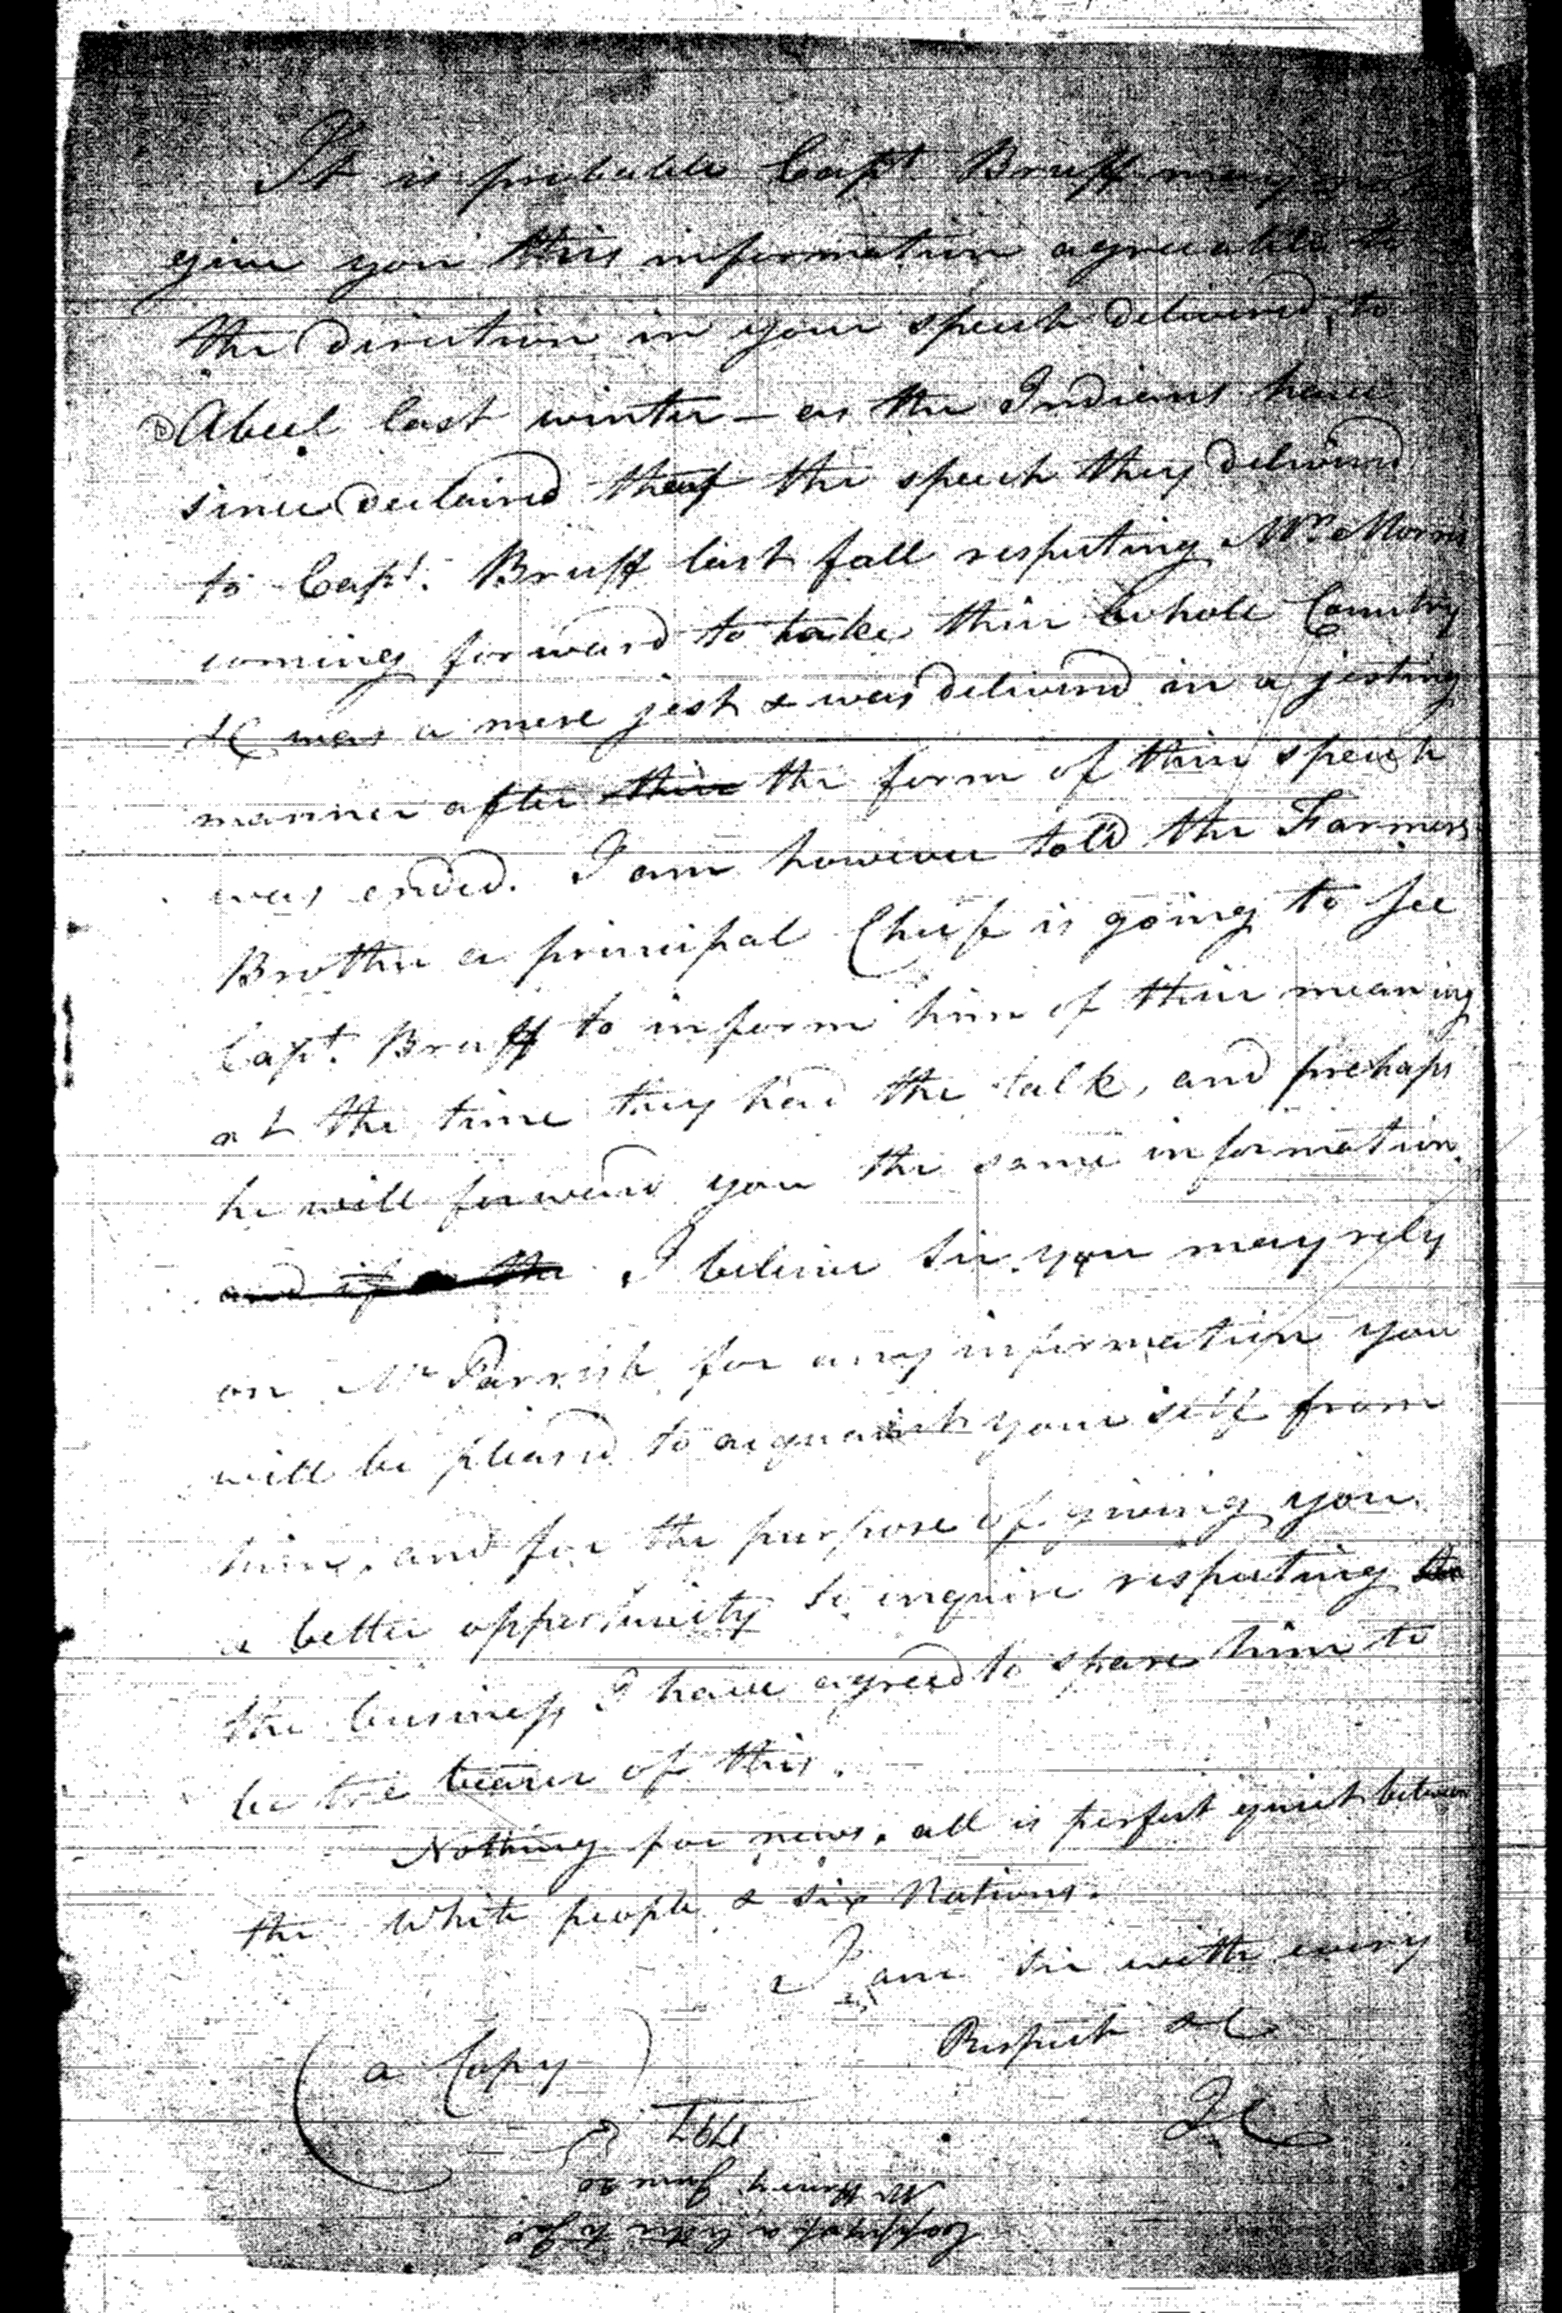 It is probable Capt. Bruff may not
give you this information agreeable to
the direction in your speech delivered, to
OAbeel last winter — as the Indians have
since declared that the speech they delivered
to Capt. Bruff last fall respecting Mr. Morris
coming forward to take their whole Country
&C was a mere jest & was delivered in a jesting
manner after their the form of their speech
was ended. I am however told the Farmers
Brother a principal Chief is going to see
Capt. Bruff to inform him of their meaning
at the time they had the talk, and prehaps
he will forward you the same information.
and if the I believe Sir you may rely
on Mr Parrish for any information you
will be pleased to acquaint your self from
him, and for the purpose of giving you
a better oppertunity to inquire respecting the
the business I have agreed to spare him to
be the bearer of this.
Nothing for news. all is perfect quiet between
the White people & six Nations.
I am sir with every
Respect &C
(a Copy)
IC
Coppy of a letter to Jas.
Mc Henry June 20
1797